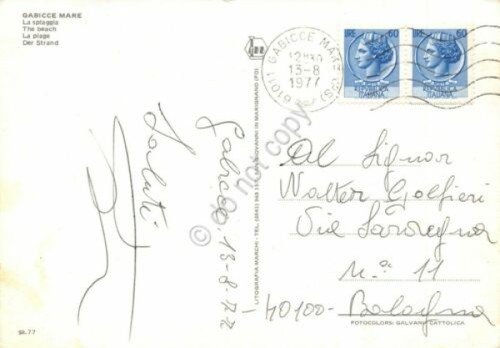 GABICCE MARE
La spiaggia
The beach
La plage
Der Strand
61011 GABICCE MARE (PS)
12
13-8
1977
LIRE 60
REPUBBLICA
ITALIANA
LIRE 60
REPUBBLICA
ITALIANA
Gabicce, 13-8-77
Saluti
LITOGRAFIA MARCHI - TEL. (0541) 963 S. GIOVANNI IN MARIGNANO (FO)
do not copy
Al Signor
Walter Golfieri
Via Sardegna
N.° 11
- 40100 - Bologna
FOTOCOLORS: GALVANI CATTOLICA
SR.77